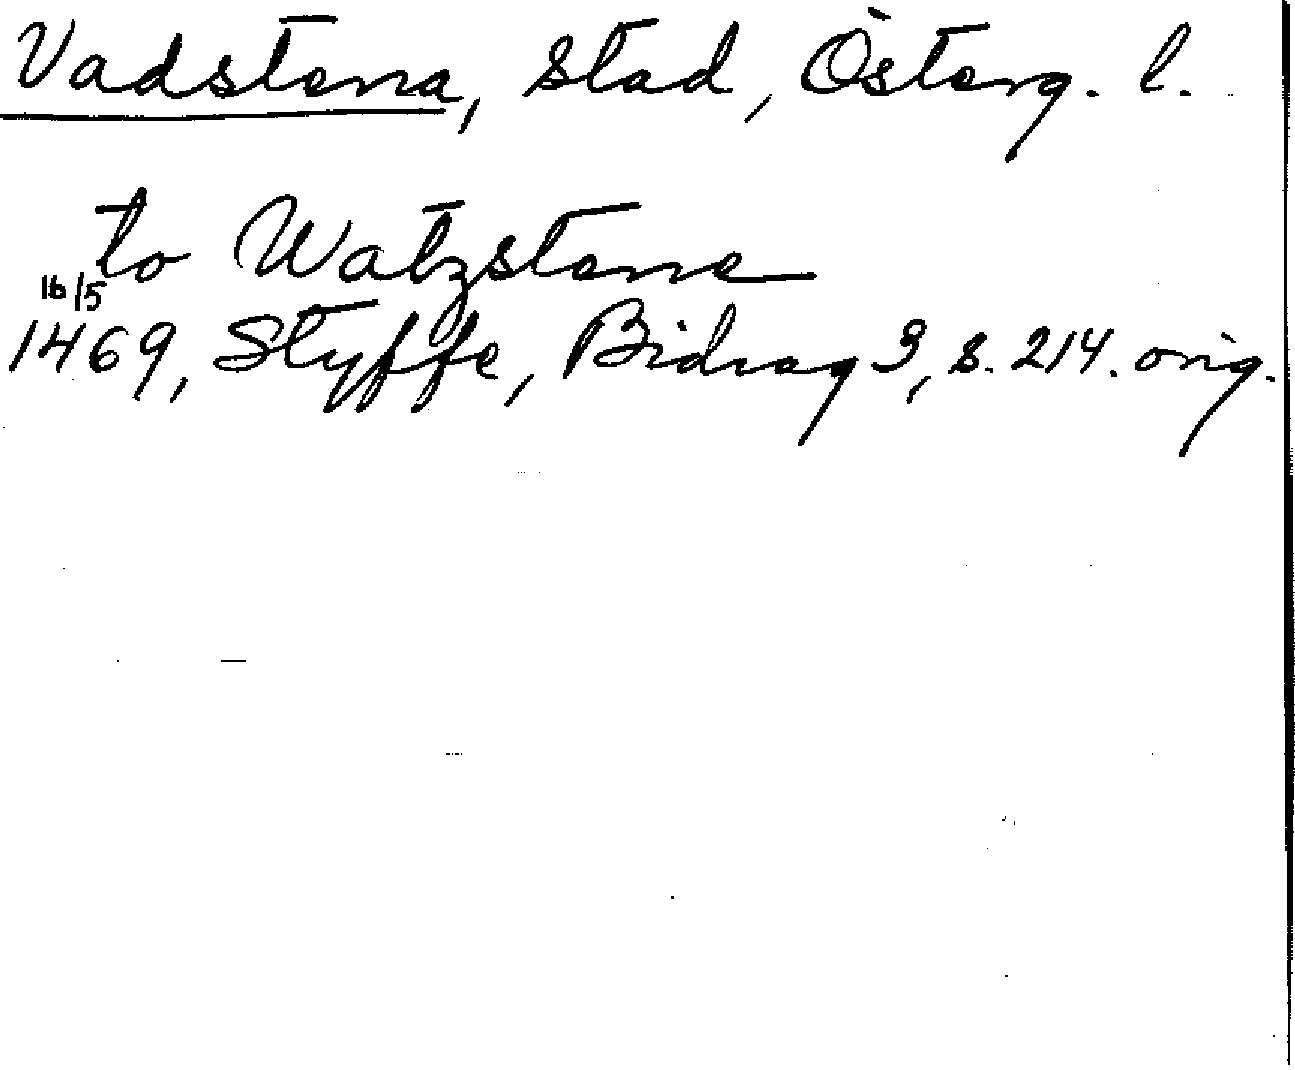 Vadstena, stad, Österg. l.
to Watzstene
16/5
1469, Styffe, Bidrag 3, s. 214. orig.